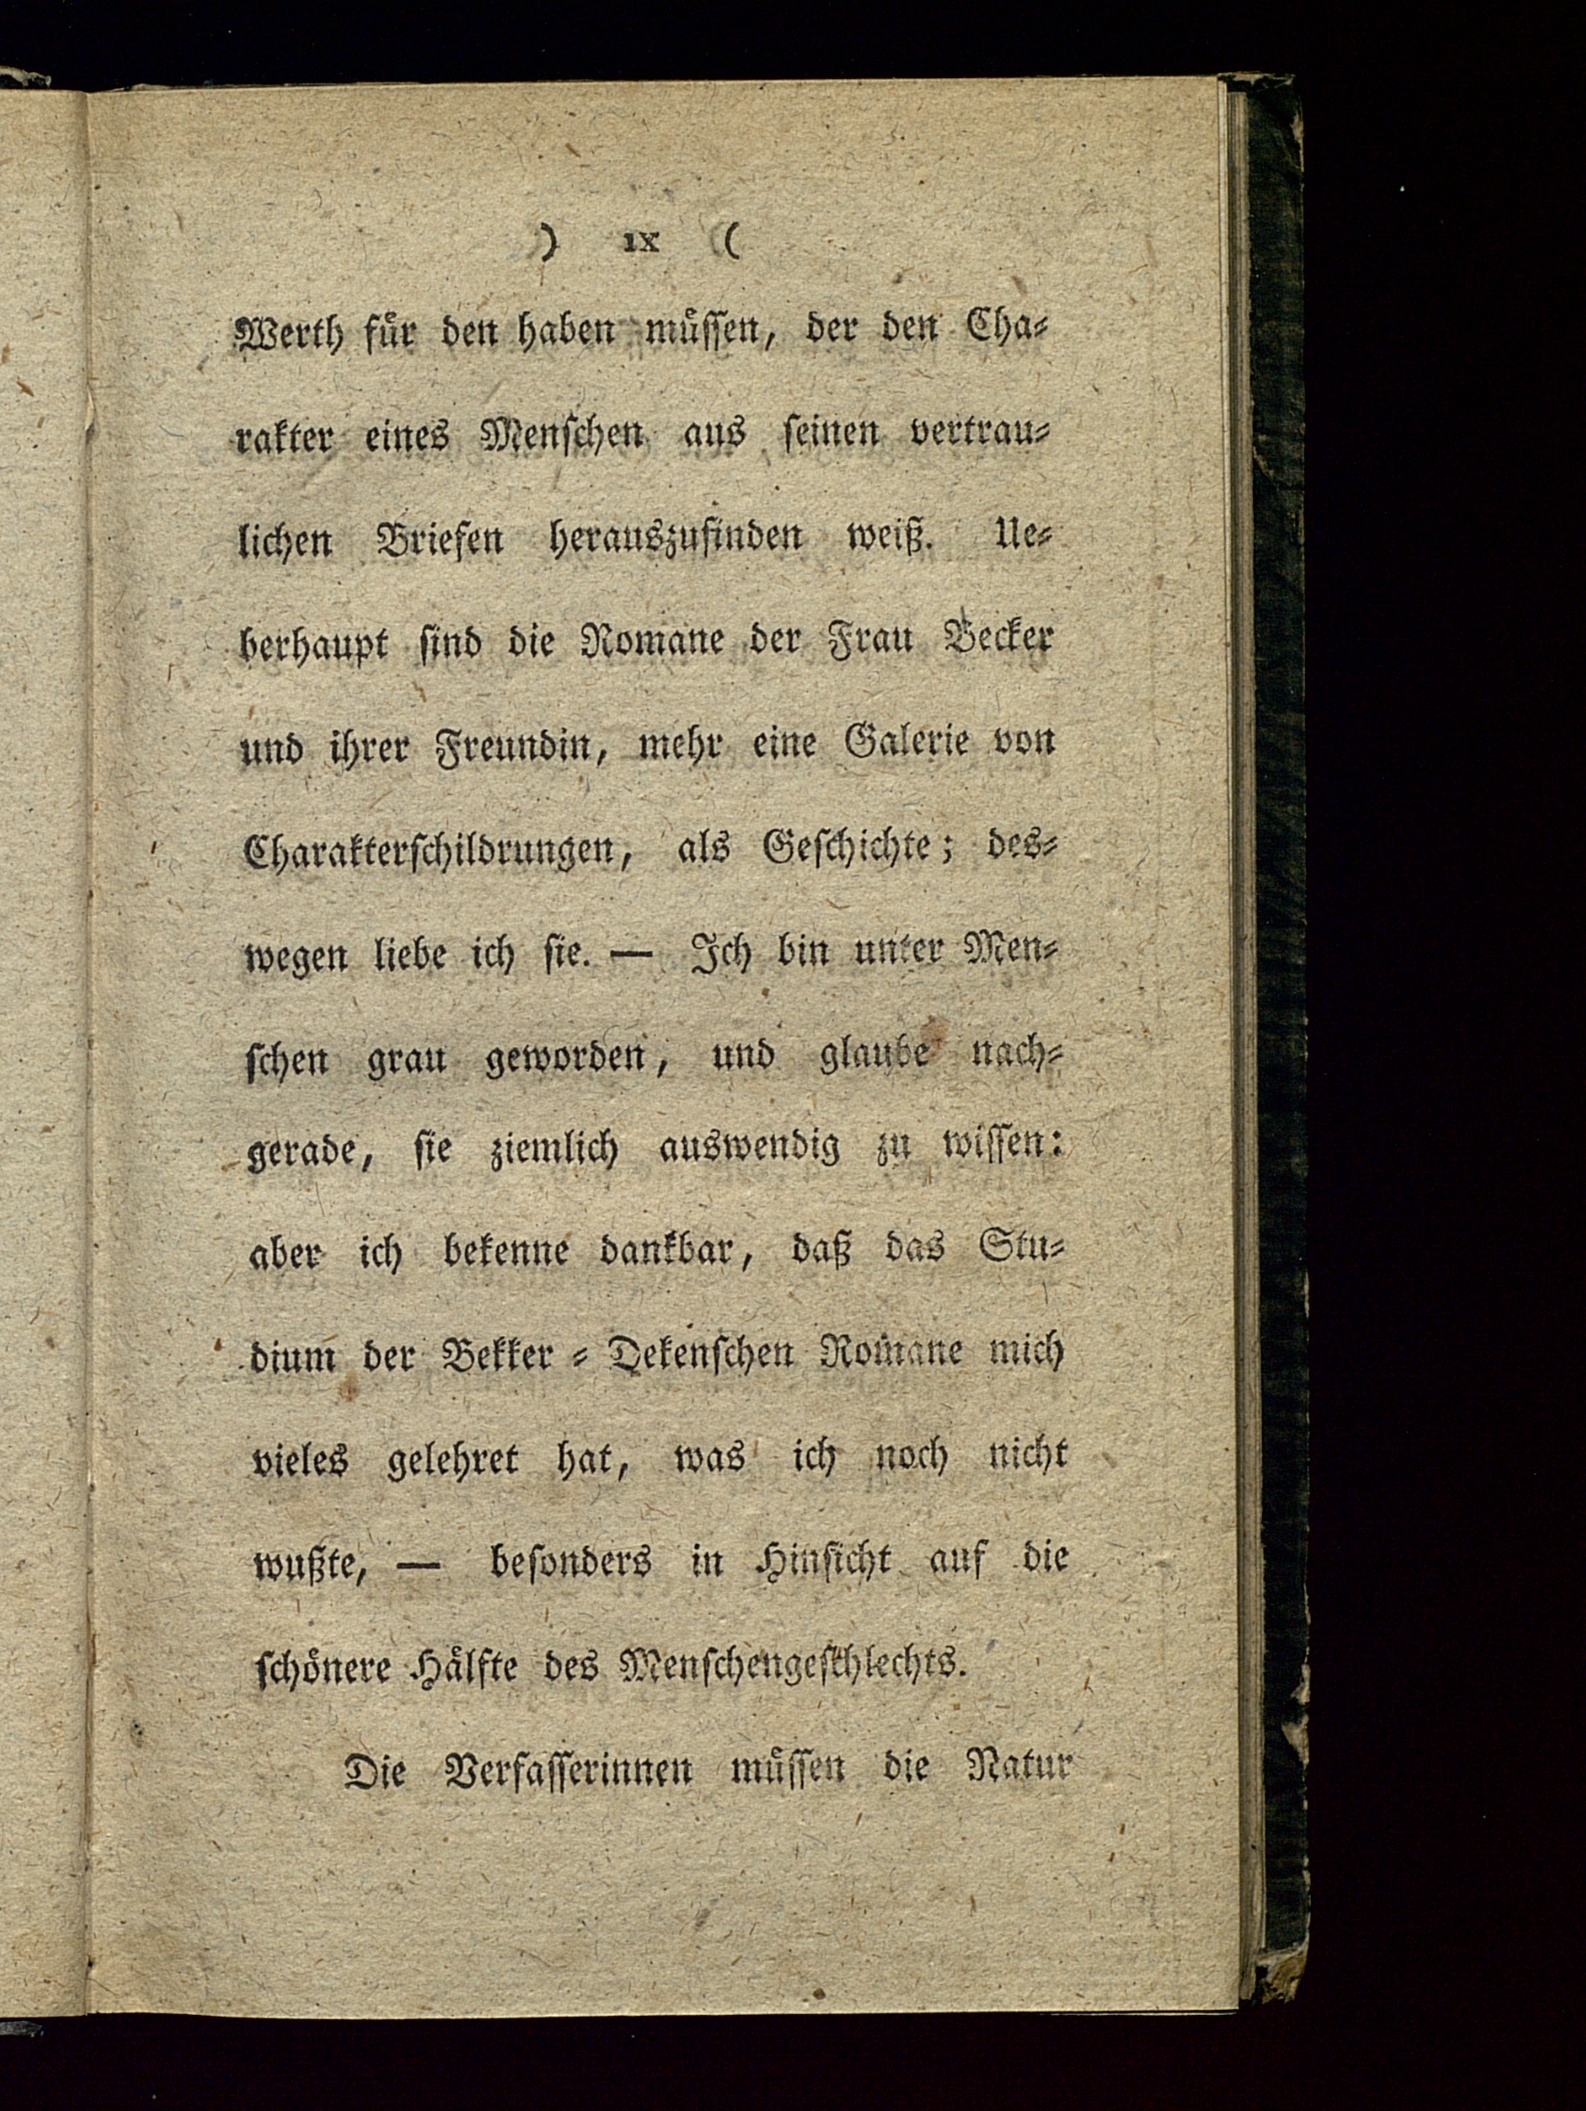 ) IX (
Werth für den haben müſſen, der den Cha⸗
rakter eines Menſchen aus ſeinen vertrau⸗
lichen Briefen herauszufinden weiß. Ue⸗
berhaupt ſind die Romane der Frau Becker
und ihrer Freundin, mehr eine Galerie von
Charakterſchildrungen, als Geſchichte; des⸗
wegen liebe ich ſie. — Ich bin unter Men⸗
ſchen grau geworden, und glaube nach⸗
gerade, ſie ziemlich auswendig zu wiſſen:
aber ich bekenne dankbar, daß das Stu⸗
dium der Bekker ⸗ Dekenſchen Romane mich
vieles gelehret hat, was ich noch nicht
wußte, — beſonders in Hinſicht auf die
ſchönere Hälfte des Menſchengeſchlechts.
Die Verfaſſerinnen müſſen die Natur